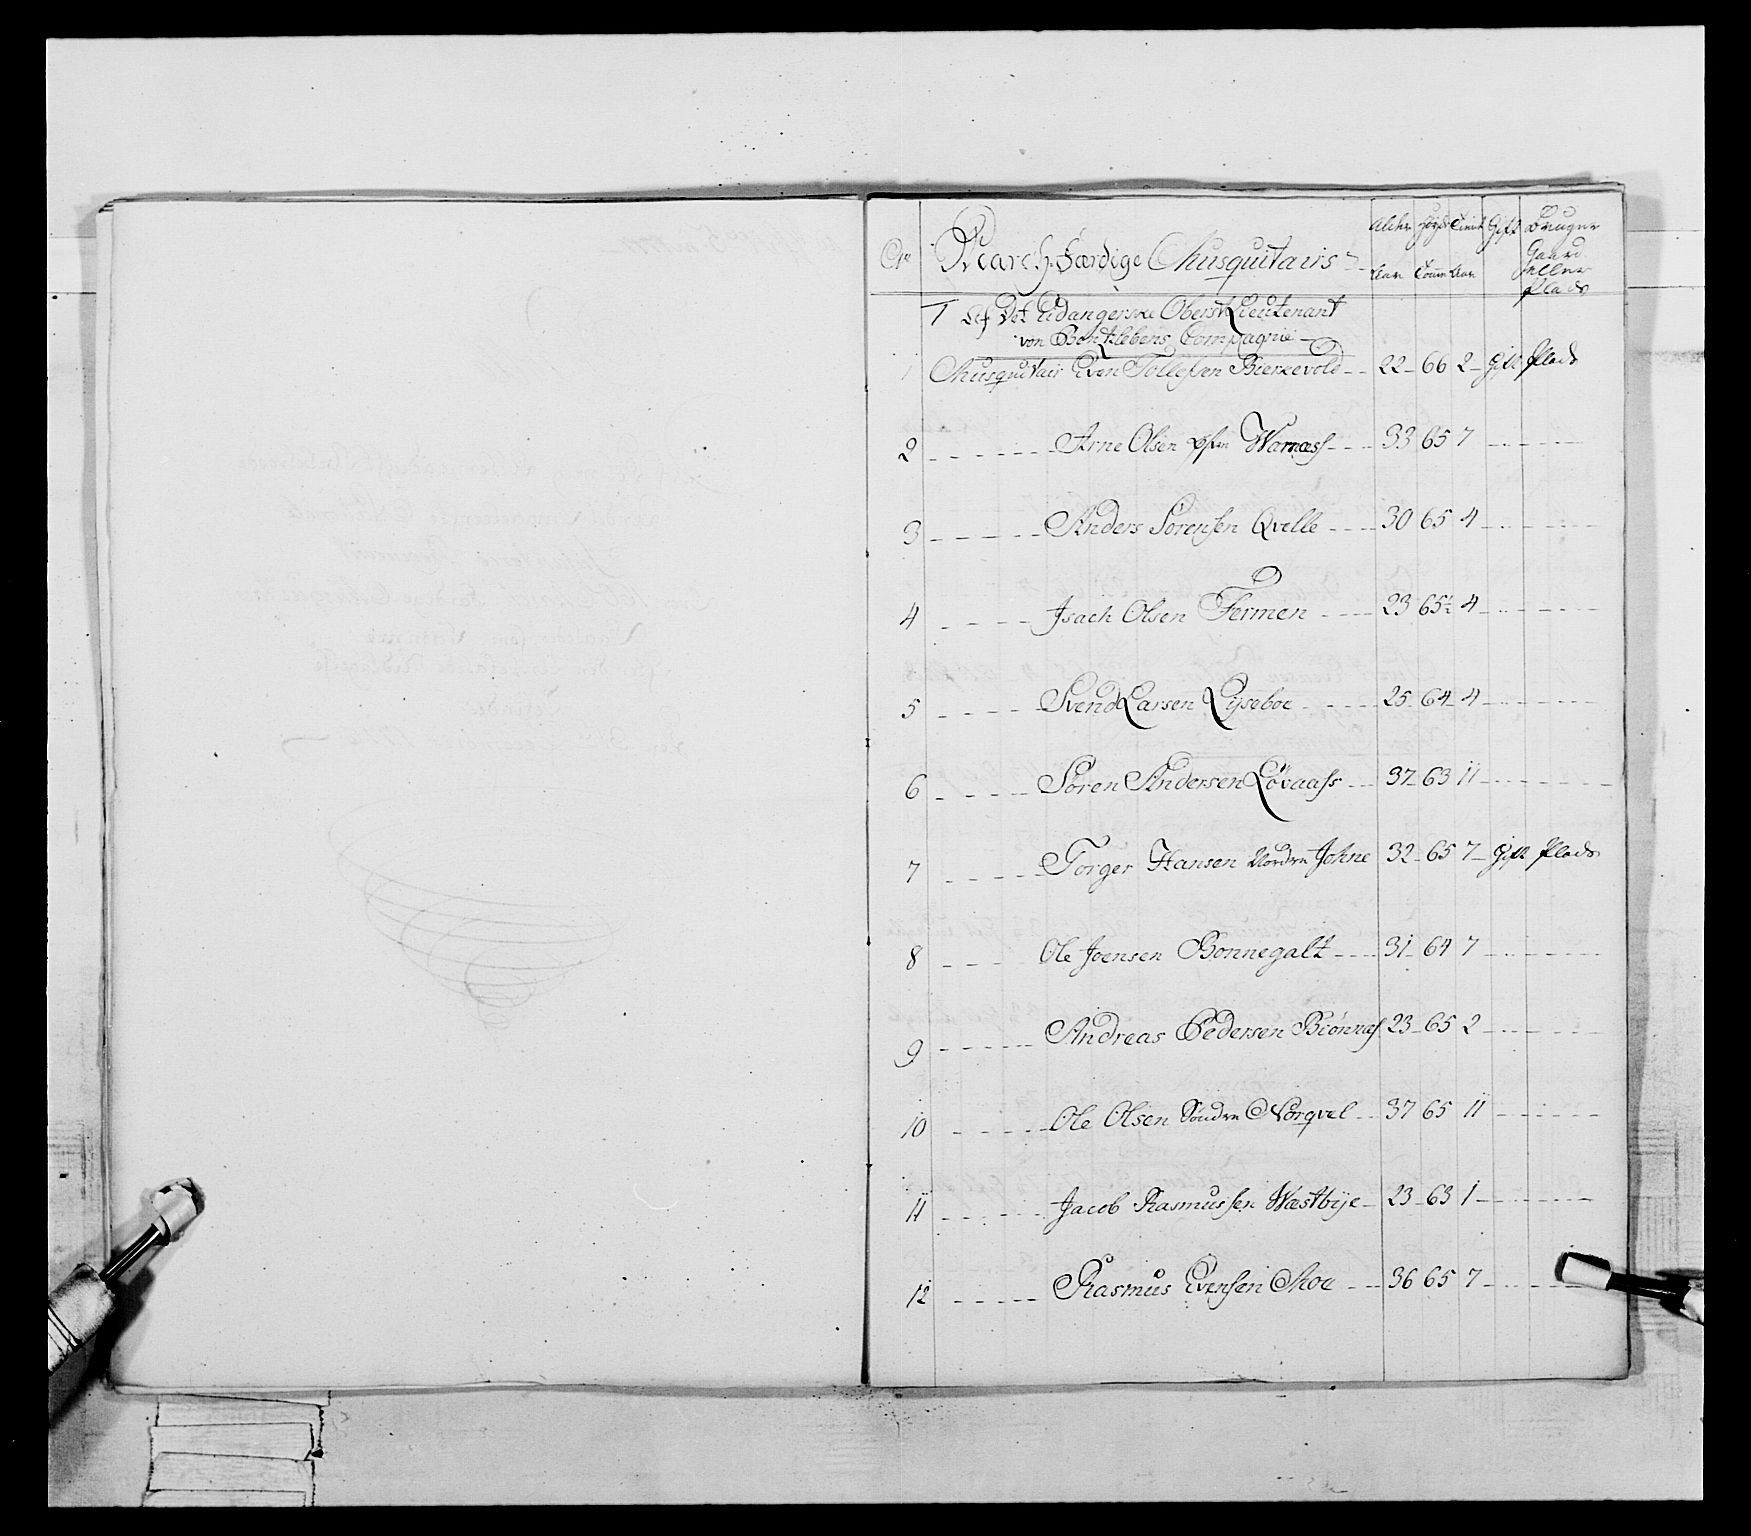 No March-Færdige Musquitairs Alder Høyde Tient Gift Bruger
Aar Tomm Aar Gaard
eller
plads
1 Af Det Eidangerske Oberst Lieutenant
von Bentzlebens Compagnie
1 Musquitair Even Tollefsen Bierkevold 22 66 2 Gift plads
2 Arne Olsen Warnæss 33 65 7
3 Anders Sörensen Qvelle 30 65 4
4 Isach Olsen Fermen 23 65½ 4
5 Svend Larsen Lijseboe 25 64 4
6 Sören Andersen Lövaass 37 63 11
7 Torger Hansen Nordre Johne 32 65 7 Gift plads
8 Ole Joensen Bonnegalt 31 64 7
9 Andreas Pedersen Biönnæs 23 65 2
10 Ole Olsen Söndre Norqvel 37 65 11
11 Jacob Rasmussen Wæstbye 23 63 1
12 Rasmus Evensen Moe 36 65 7